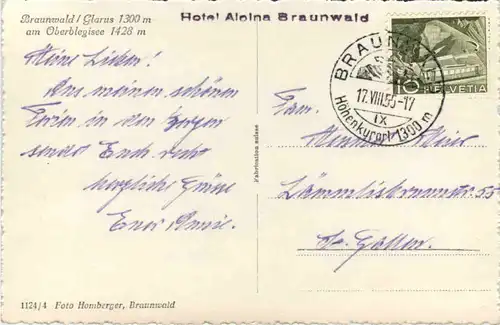 Braunwald / Glarus 1300 m
am Oberblegisee 1428 m
Hotel Alpina Braunwald
BRAUNWALD
17.VIII.55-17
IX
Höhenkurort 1300 m
10
HELVETIA
Meine Lieben!
Aus meinen schönen
Ferien in den Bergen
sendet Euch recht
herzliche Grüsse
Eure Annie.
Fam.
Meier
Lämmlisbrunnstr. 55
St. Gallen.
Fabrication suisse
1124/4 Foto Homberger, Braunwald